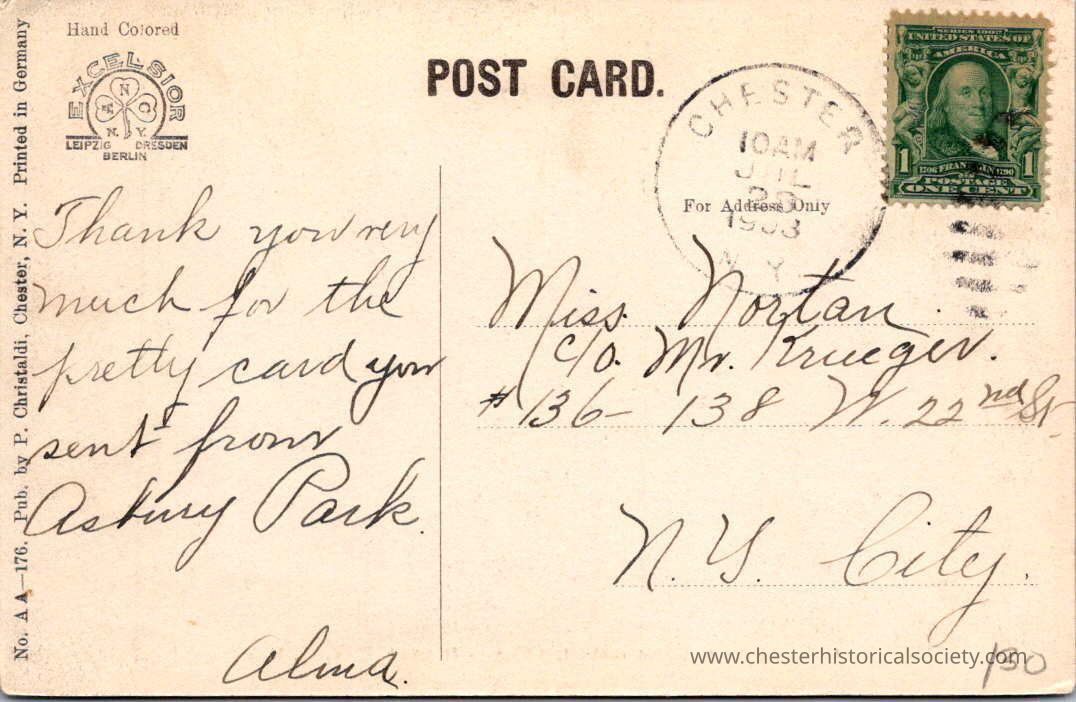 Hand Colored
EXCELSIOR
N. Y.
LEIPZIG DRESDEN
BERLIN
POST CARD.
CHESTER
10AM
JUL
N. Y.
SERIES 1902
UNITED STATES OF
AMERICA
1706 FRANKLIN 1790
POSTAGE
1 ONE CENT 1
For Address Only
No. AA—176. Pub. by P. Christaldi, Chester, N. Y. Printed in Germany
Thank you very
much for the
pretty card you
sent from
Asbury Park.
Alma.
Miss. Nortan.
c/o. Mr. Krueger.
#136-138 W. 22nd St.
N. Y. City.
www.chesterhistoricalsociety.com
130